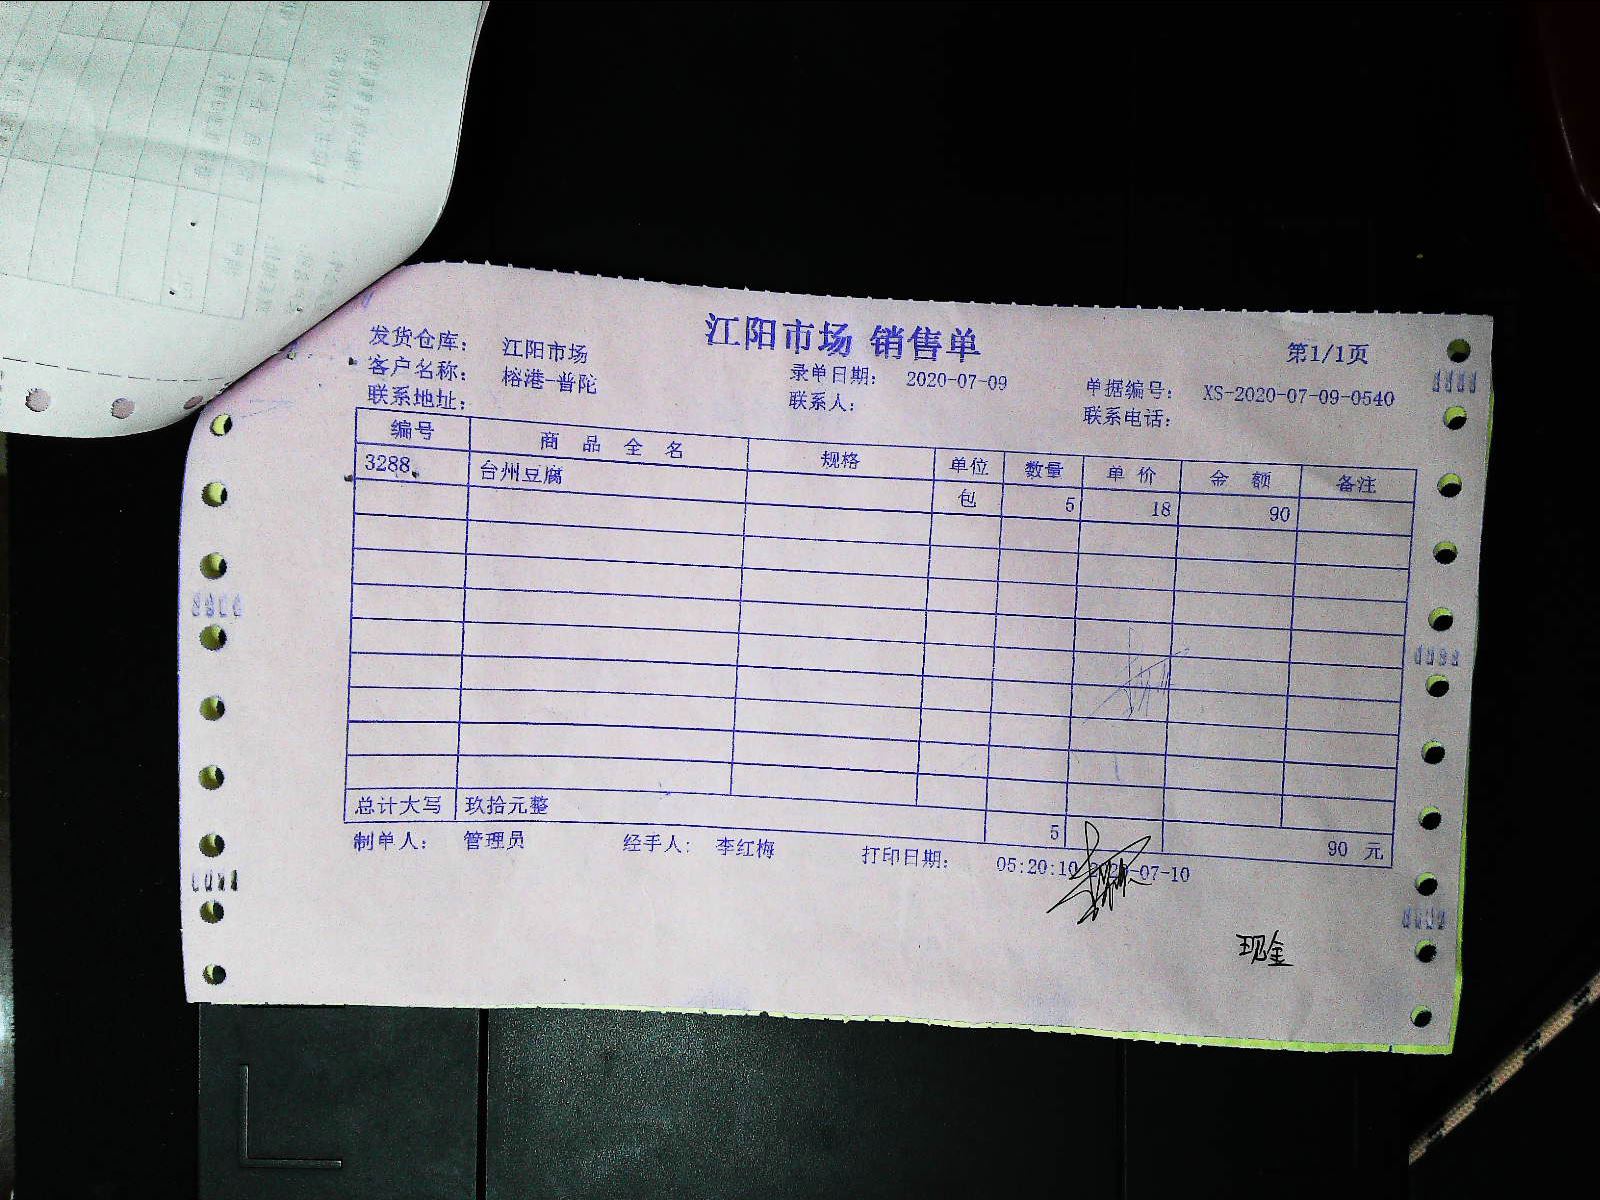 江阳市场 销售单
第1/1页
发货仓库： 江阳市场
客户名称： 榕港-普陀 录单日期： 2020-07-09 单据编号： XS-2020-07-09-0540
联系地址： 联系人： 联系电话：
编号 商 品 全 名 规格 单位 数量 单 价 金 额 备注
3288 台州豆腐 包 5 18 90
总计大写 玖拾元整 5 90 元
制单人： 管理员 经手人： 李红梅 打印日期： 05:20:10 2020-07-10
现金